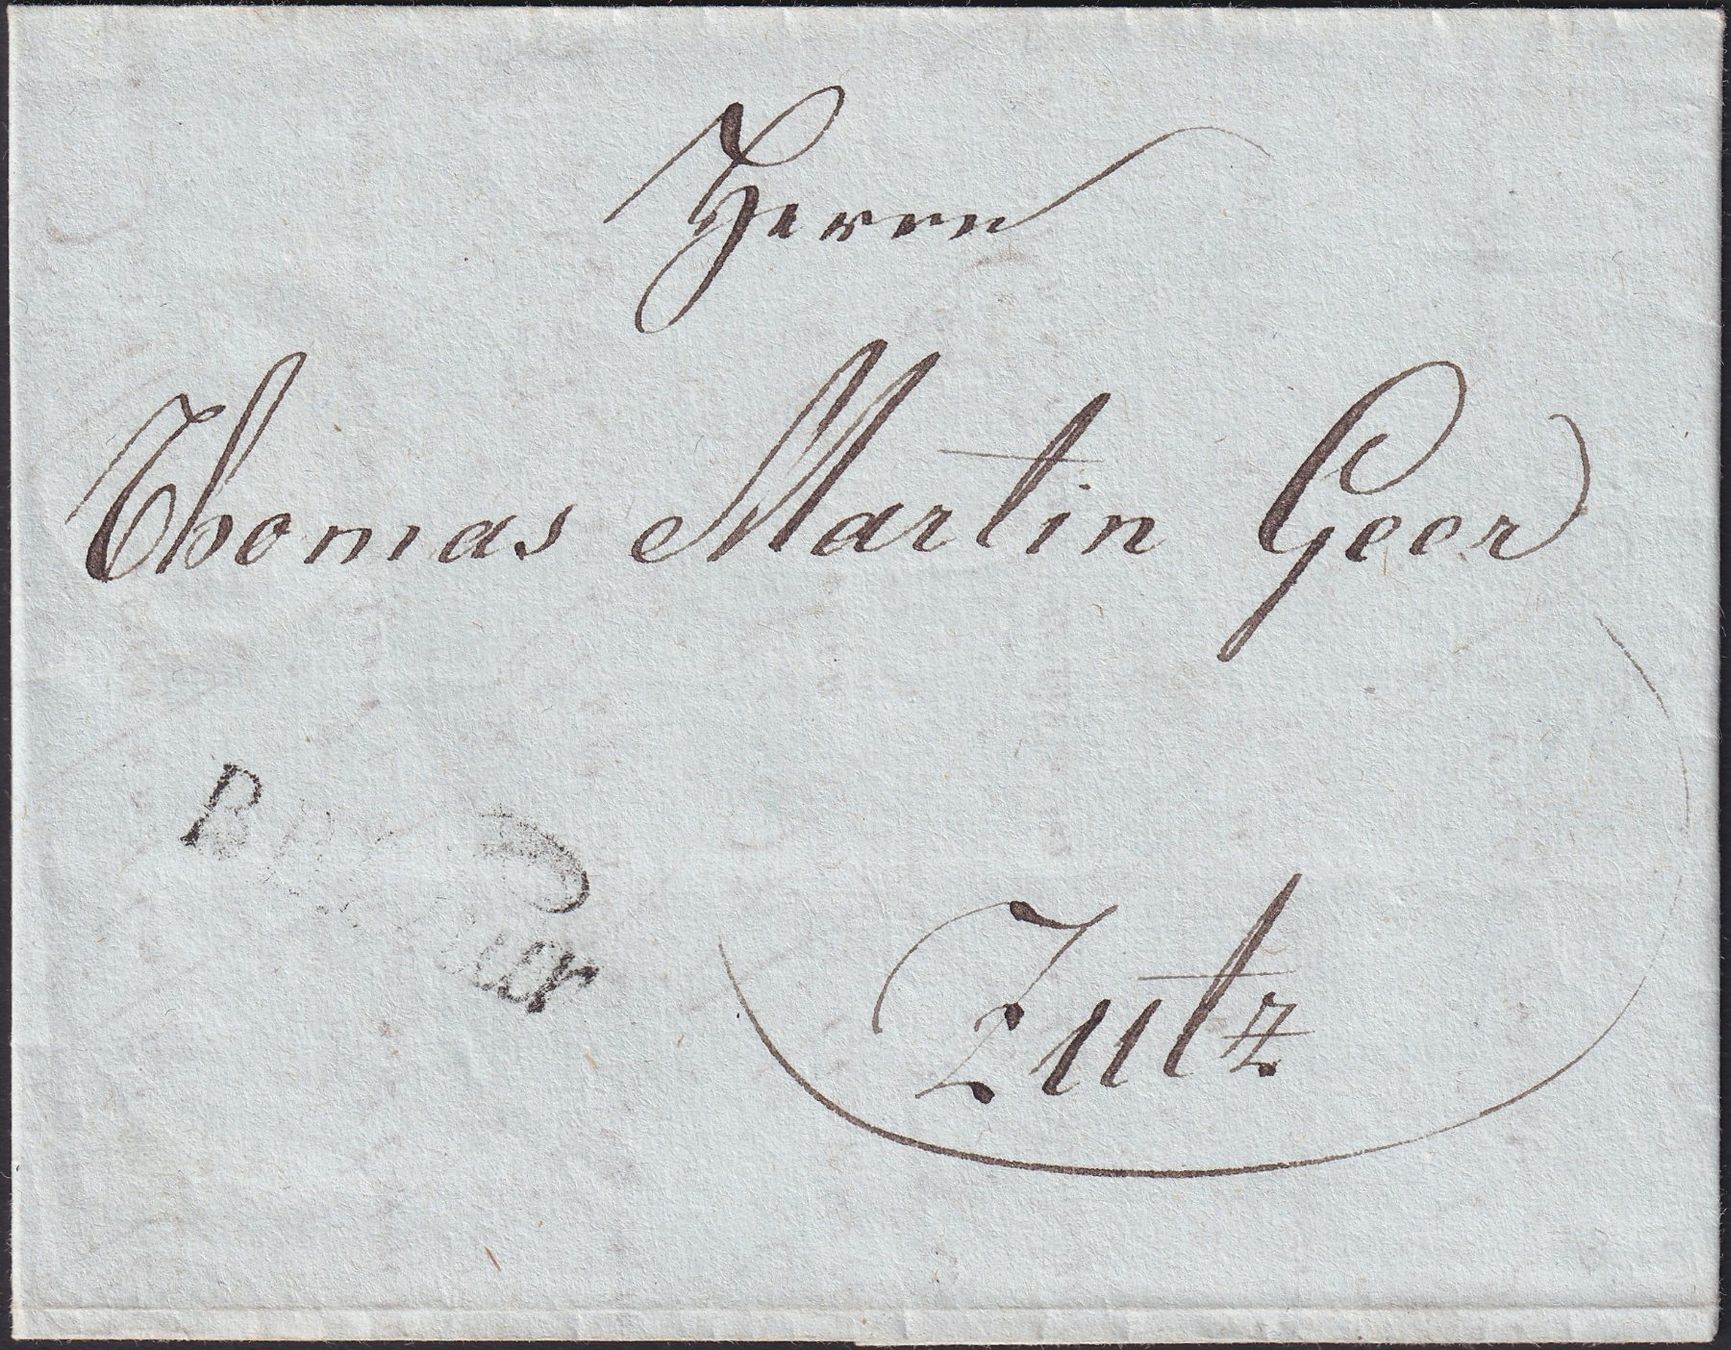 Herrn
Thomas Martin Geer
Zutz